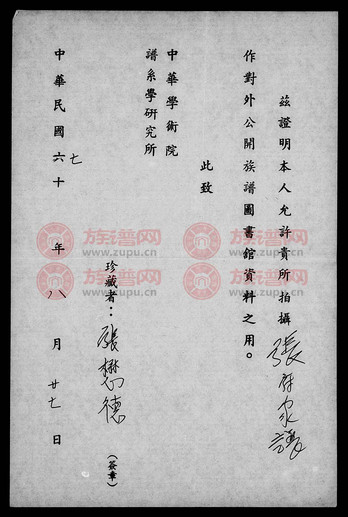 茲證明本人允許貴所拍攝張氏家譜
作對外公開族譜圖書館資料之用。
此致
中華學術院
譜系學研究所
珍藏者：張懋德（簽章）
中華民國六十七年八月廿七日
族谱网
www.zupu.cn
族谱网
www.zupu.cn
族谱网
www.zupu.cn
族谱网
www.zupu.cn